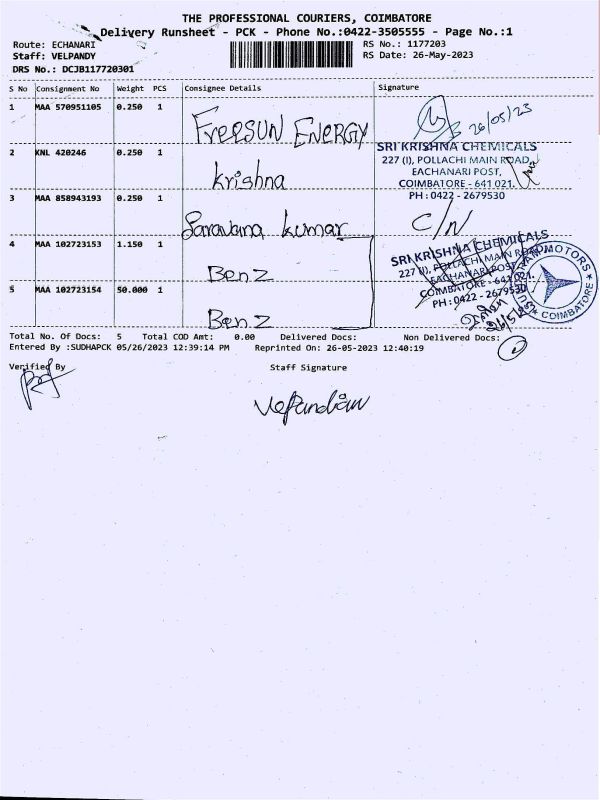 THE PROFESSIONAL COURIERS, COIMBATORE
Delivery Runsheet - PCK - Phone No.:0422-3505555 - Page No.:1
Route: ECHANARI
RS No.: 1177203
Staff: VELPANDY
RS Date: 26-May-2023
DRS No.: DCJB117720301
S No Consignment No Weight PCS Consignee Details Signature
1 MAA 570951105 0.250 1
Freesun Energy
26/05/23
SRI KRISHNA CHEMICALS
227 (I), POLLACHI MAIN ROAD,
EACHANARI POST,
COIMBATORE - 641 021.
PH : 0422 - 2679530
2 KNL 420246 0.250 1
Krishna
3 MAA 858943193 0.250 1
Saravana kumar
C/N
4 MAA 102723153 1.150 1
Benz
SRI KRISHNA CHEMICALS
227 (I), POLLACHI MAIN ROAD,
EACHANARI POST,
COIMBATORE - 641 021.
PH : 0422 - 2679530
MOTORS
COIMBATORE
26/5/23
5 MAA 102723154 50.000 1
Benz
Total No. Of Docs: 5 Total COD Amt: 0.00 Delivered Docs: Non Delivered Docs:
Entered By :SUDHAPCK 05/26/2023 12:39:14 PM Reprinted On: 26-05-2023 12:40:19
Verified By
Staff Signature
Velpandian